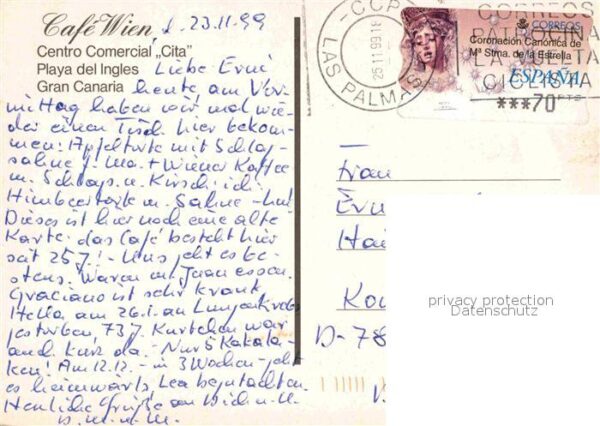 Café Wien
d. 23.11.99
Centro Comercial „Cita"
Playa del Ingles
Gran Canaria
Liebe Erni
heute, am Vor-
mittag haben wir mal wie-
der einen Tisch hier bekom-
men: Apfeltorte mit Schlag-
sahne f. Ma. + Wiener Kaffee
m. Schlags. u. Kirsch; ich:
Himbeertorte m. Sahne - hm!
Dieses ist hier noch eine alte
Karte: das Café besteht hier
seit 25 J.! - Uns geht es be-
stens. Waren mit Juan essen.
Graciano ist sehr krank,
Hella am 26.1. an Lungenkrebs
gestorben, 73 J. Kurtchen war
auch kurz da. Nur 5 Kakala-
ken! Am 12.12. - in 3 Wochen - geht
es heimwärts. Lea
Herzliche Grüße an Dich u. U.
CCP
LAS PALMAS
25 11 99
CORREOS
PATROCINA
LA VUELTA
CICLISTA
CORREOS
Coronación Canónica de
Mª Stma. de la Estrella
ESPAÑA
***70 PTS
Frau
D-78
privacy protection
Datenschutz